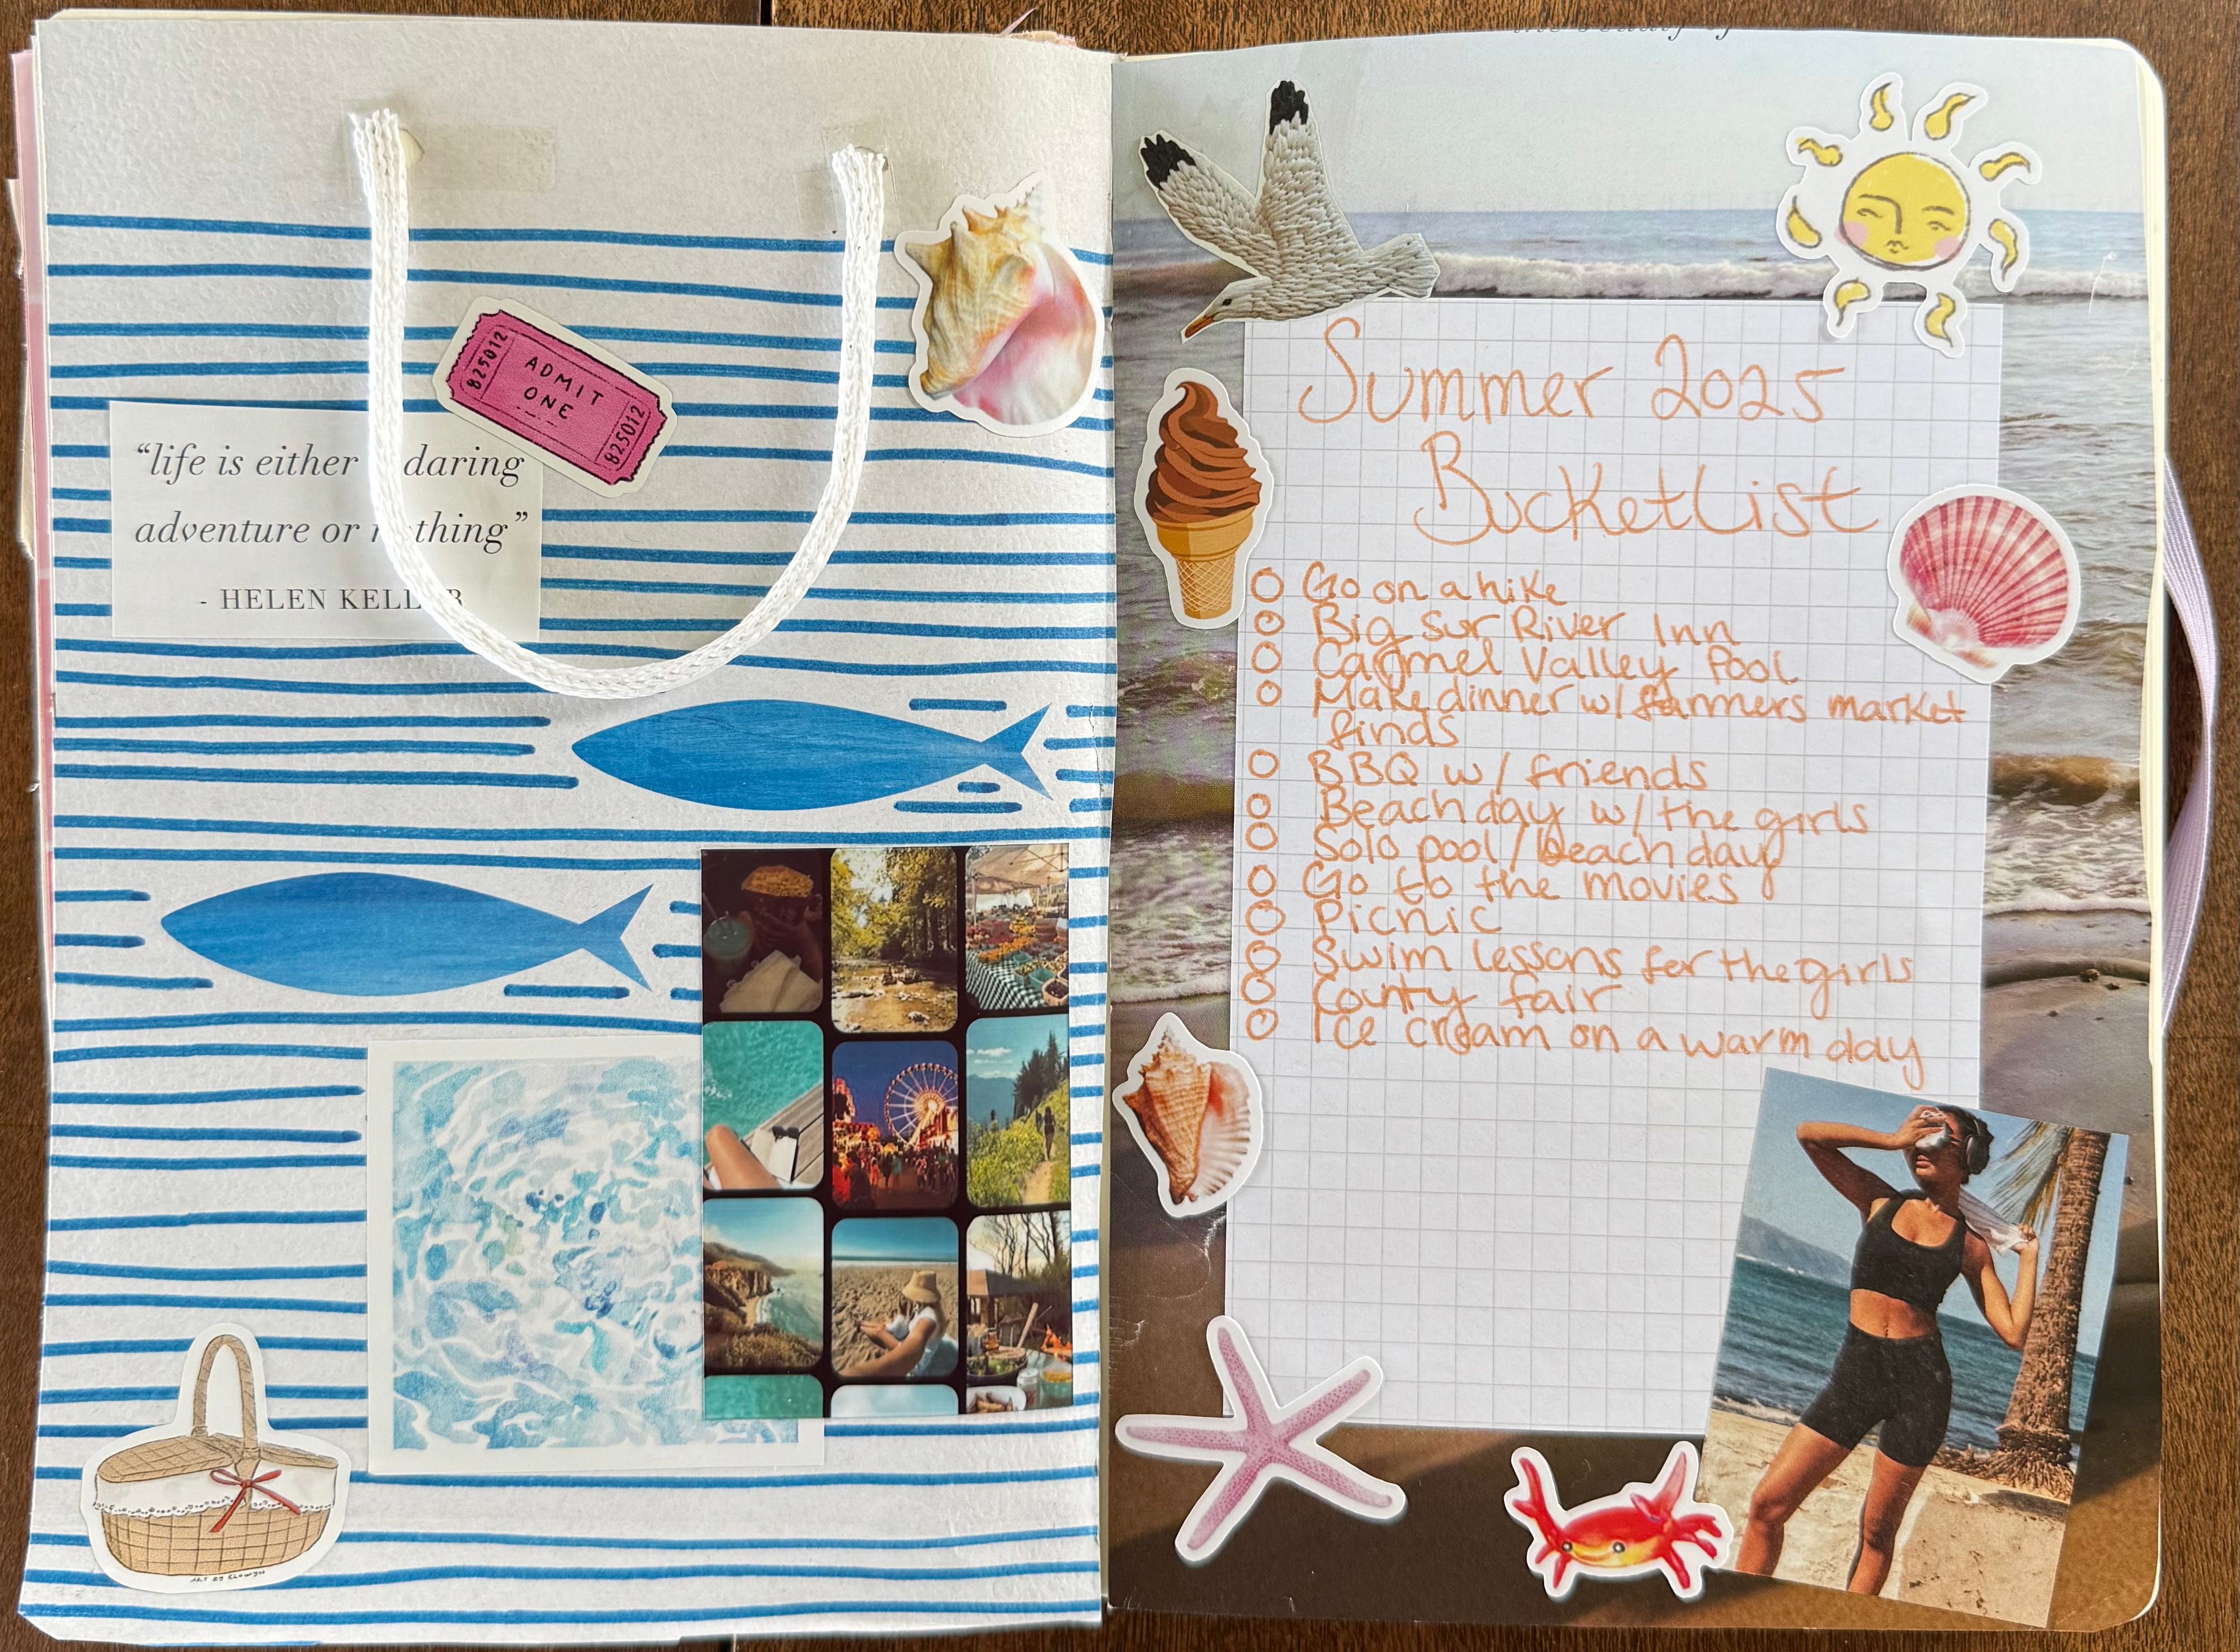 B25012
ADMIT
ONE
B25012
"life is either daring
adventure or nothing"
- HELEN KELLER
ART BY CLOWYN
the beauty of
Summer 2025
Bucketlist
Go on a hike
Big Sur River Inn
Carmel Valley Pool
Make dinner w/ farmers market
finds
BBQ w/ friends
Beach day w/ the girls
Solo pool/beach day
Go to the movies
Picnic
Swim lessons for the girls
County fair
Ice cream on a warm day